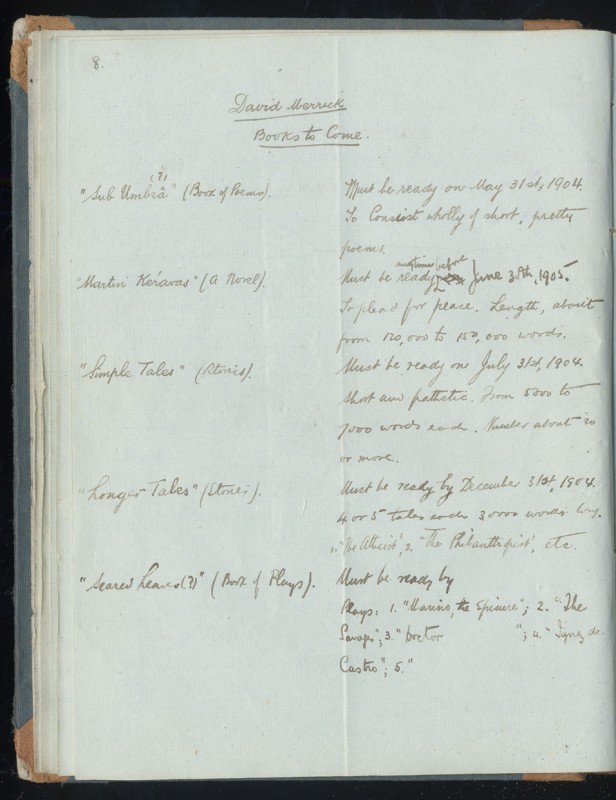 8.
David Merrick
Books to Come.
(?)
"Sub Umbrâ" (Book of Poems). Must be ready on May 31st, 1904.
To Consist wholly of short, pretty
poems.
"Martin Kéravas" (A Novel). Must be ready anytime before June 30th, 1905.
To plead for peace. Length, about
from 120,000 to 150,000 words.
"Simple Tales" (Stories). Must be ready on July 31st, 1904.
Short and pathetic. From 5000 to
7000 words each. Number about 20
or more.
"Longer Tales" (Stories). Must be ready by December 31st, 1904.
4 or 5 tales each 30000 words long.
1. "The Atheist", 2. "The Philanthropist", etc.
"Seared Leaves (?)" (Book of Plays). Must be ready by
Plays: 1. "Marino, the"; 2. "The
Savage"; 3. "Doctor "; 4. "Ignez de
Castro"; 5. "